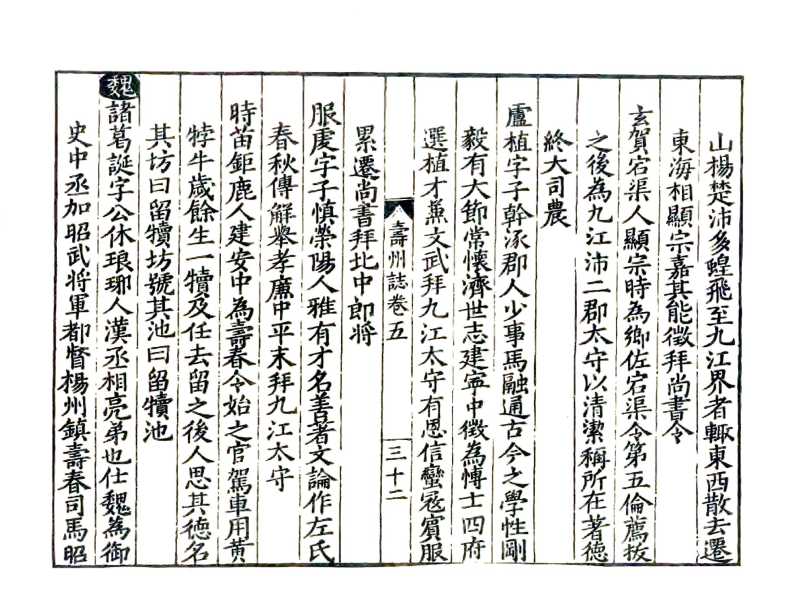 山楊楚沛多蝗飛至九江界者輙東西散去遷
東海相顯宗嘉其能徵拜尚書令
玄賀宕渠人顯宗時為鄉佐宕渠令第五倫薦拔
之後為九江沛二郡太守以清潔稱所在著德
終大司農
盧植字子幹涿郡人少事馬融通古今之學性剛
毅有大節常懷濟世志建寧中徵為愽士四府
選植才兼文武拜九江太守有恩信蠻冦賓服
壽州誌卷五
三十二
累遷尚書拜北中郎將
服虔字子慎滎陽人雅有才名善著文論作左氏
春秋傳解舉孝廉中平末拜九江太守
時苗鉅鹿人建安中為壽春令始之官駕車用黃
牸牛歲餘生一犢及任去留之後人思其德名
其坊曰留犢坊號其池曰留犢池
魏
諸葛誕字公休琅琊人漢丞相亮弟也仕魏為御
史中丞加昭武將軍都督楊州鎮壽春司馬昭